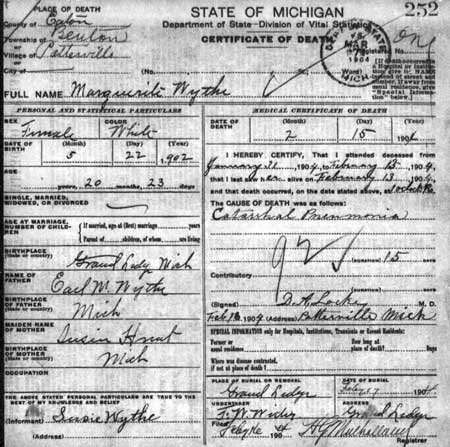 PLACE OF DEATH
STATE OF MICHIGAN
252
County of Eaton
Department of State—Division of Vital Statistics
Township of Benton
CERTIFICATE OF DEATH
Village of Potterville
City of
FULL NAME Marguerite Wythe
PERSONAL AND STATISTICAL PARTICULARS
SEX Female
COLOR White
DATE OF BIRTH
(Month) (Day) (Year)
5 22 1902
AGE
years, 20 months, 23 days
SINGLE, MARRIED, WIDOWED, OR DIVORCED
AGE AT MARRIAGE, NUMBER OF CHILDREN
If married, age at (first) marriage years
Parent of children, of whom are living
BIRTHPLACE
(State or country) Grand Ledge Mich
NAME OF FATHER
Earl M. Wythe
BIRTHPLACE OF FATHER
(State or country) Mich
MAIDEN NAME OF MOTHER
Susie Hunt
BIRTHPLACE OF MOTHER
(State or country) Mich
OCCUPATION
THE ABOVE STATED PERSONAL PARTICULARS ARE TRUE TO THE BEST OF MY KNOWLEDGE AND BELIEF
(Informant) Susie Wythe
(Address)
MEDICAL CERTIFICATE OF DEATH
DATE OF DEATH
(Month) (Day) (Year)
2 15 1904
I HEREBY CERTIFY, That I attended deceased from
January 31, 1904, to February 13 1904
that I last saw her alive on February 13 1904
and that death occurred, on the date stated above, at
The CAUSE OF DEATH was as follows:
Catarrhal Pneumonia
(DURATION) 15 DAYS
Contributory
(DURATION) DAYS
(Signed) M. D.
1904 (Address) Potterville Mich
SPECIAL INFORMATION only for Hospitals, Institutions, Transients or Recent Residents:
Former or usual residence
How long at place of death? Days
Where was disease contracted, if not at place of death?
PLACE OF BURIAL OR REMOVAL
DATE OF BURIAL
Grand Ledge
Feby 17 1904
UNDERTAKER
ADDRESS
Grand Ledge
Filed
Registrar